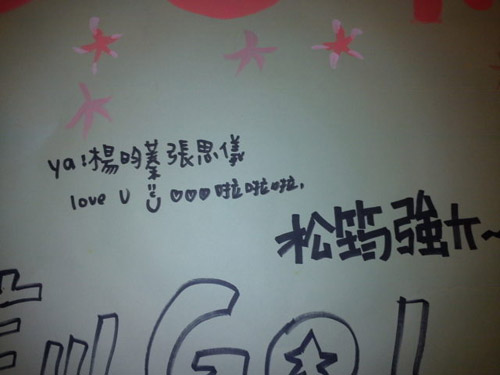 ya!楊昀蓁張思儀
love U ♡♡♡啦啦啦.
松筠強大~
GO!